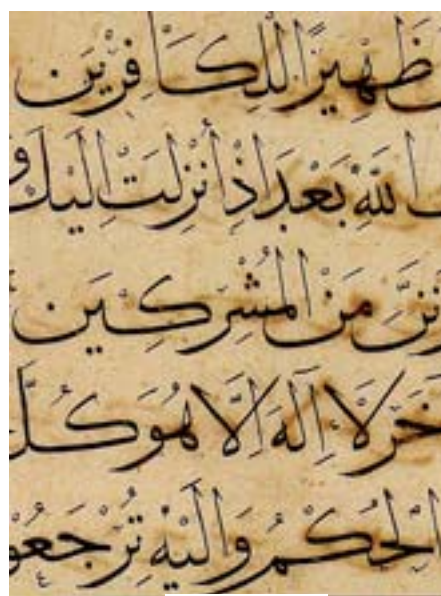 ظَهِيرًا لِلْكَافِرِينَ
اللَّهِ بَعْدَ إِذْ أُنْزِلَتْ إِلَيْكَ و
نَنَّ مِنَ الْمُشْرِكِينَ
خَرَ لَا إِلَهَ إِلَّا هُوَ كُلُّ
الْحُكْمُ وَإِلَيْهِ تُرْجَعُو